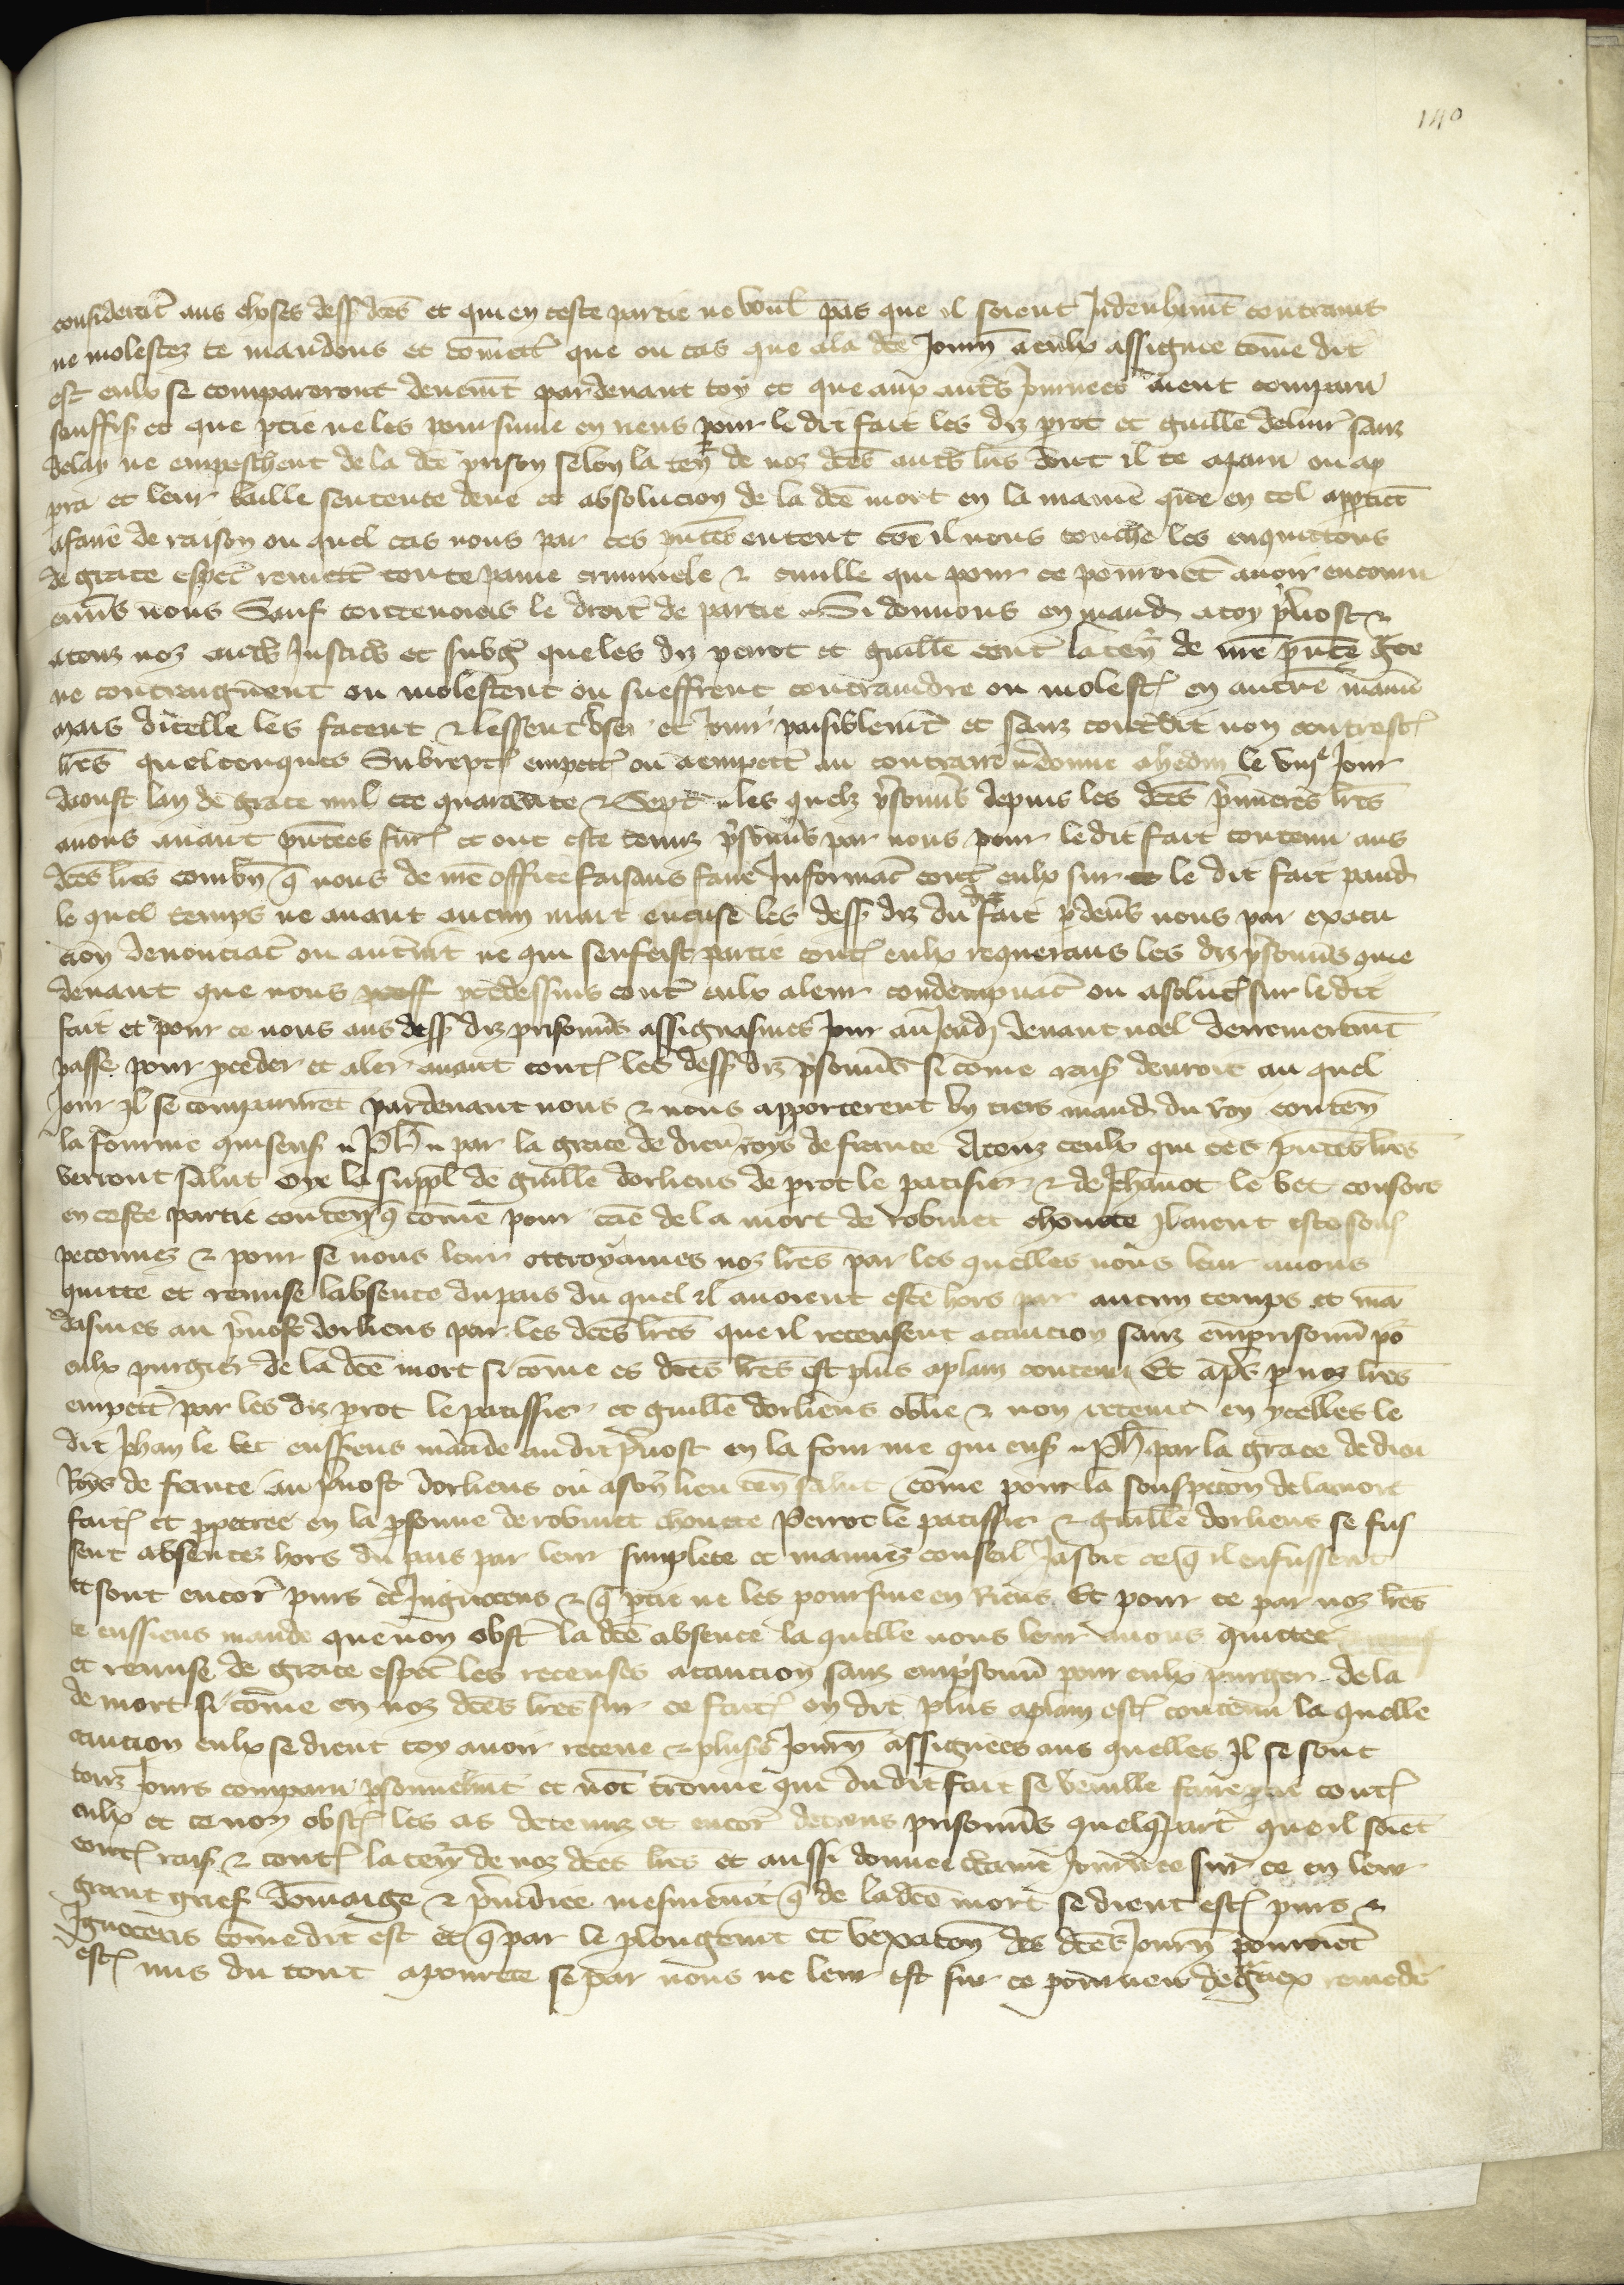 140
consideracõ aus choses dess dčes et qui en ceste partie ne voul pas que il soient Indeubmt contrains
ne molestez te mandons et cõmett que ou cas que ala dce Journ a eulx assignee cõme dit
est eulx se comparront deuemt pardeuant toy et que aux autrs journees aient comparu
souffis et que ptie ne les poursuiue en riens pour le dit fait les diz prot et guille deliur sanz
delay ne empeschent de la dce prison selon la ten de noz dces autrs lrs dont il te apara ou ap
pra et leur baille sentente deue et absolucion de la dce mort en la maniē que en tel apptiet
afaire de raison ou quel cas nous par ces pntes entent cõe il nous touche les enquittons
de grace espec remett toute paine criminele & ciuille que pour ce pourroiēt auoir encouru
enuers nous Sauf toutevoies le droit de partie Si donnons en mand a toy prevost &
a touz noz autrs Justics et subg que les diz perrot et guille cont la ten de nre pnte gce
ne contraignent ou molestent ou sueffrent contraindre ou molest en autre maniē
mais dicelle les facent & lessent user et jouir paisiblemt et sanz contredit non contrest
lres quelconques Subrept empett ou a empett au contraire donne a hedin le viije jour
daoust lan de grace mil ccc quarante & Sept les quelz prisonns depuis les dces primeres lres
auons auant pntees fur et ont este tenuz prisonns par nous pour le dit fait contenu aus
dces lres combn q nous de nre office faisans faire Informac cont eulx sur ce le dit fait pand
le quel temps ne auant aucun nait encuse les dess diz du dit fait pdeus nous par exacu
cion denonciac ou autrmt ne qui sen feist partie cont eulx requerans les diz prisonns que
deuant que nous pcedessins cont eulx a leur condempnac ou asoluc sur le dit
fait et pour ce nous aus dess diz prisonns assignasmes jour au jeudj deuant noel derreneremt
passe pour pceder et aler auant cont les dess diz prisonns si cõme rais deuroit au quel
jour il se comparurēt pardeuant nous & nous apporterent un tiers mand du Roy conten
la fourme qui sens Ph par la grace de dieu roys de france A touz ceulx qui ces pntes lres
verront salut oye la suppl de guille dorliens de prot le patisier & de Jehanot le vet consors
en ceste partie conten q cõme pour cãe de la mort de robinet chouete il aient este sous
peconnez & pour se nous leur ottroyames noz lres par les quelles nous leur auons
quitte et remise labsence du pais du quel il auoient este hors par aucun temps et mã
dasmes au prevost dorliens par les dces lres que il receusent a caucion sanz emprisonn põ
eulx purgier de la dce mort si cõme es dces lres est plus a plain contenu Et apres p noz lres
empett par les diz prot le patissier et guille dorliens oblie & non retenu en ycelles le
dit Jehan le vet eussiens mande au dit prevost en la fourme qui ens Ph par la grace de dieu
Roys de france au prevost dorliens ou a son lieu ten salut cõme pour la souspecon de la mort
fait et ppetree en la psonne de robinet chouete Perrot le patissier & guille dorliens se fus
sent absentez hors du pais par leur simplete et mauuez conseil jasoit ce q il en fussent
et sont encor purs et Ingnocens & q ptie ne les poursuie en Riens Et pour ce par noz lres
te eussiens mande que non obst la dce absence la quelle nous leur auons quittee
et remise de grace espec les receuses a caucion sanz emprisonn pour eulx purger de la
de mort si cõme en noz dces lres sur ce fait on dit plus a plain est contenu la quelle
caucion eulx se dient toy auoir receue & pluss journ assignees aus quelles il se sont
touz jours comparu psonnelmt et nont trouue qui du dit fait se veuille faire ptie cont
eulx et ce non obst les as detenuz et encor detiens prisonns quelq part que il soiēt
cont rais & cont la ten de noz dces lres et aussi donner de autre journ sur ce en leur
grant grief dõmaige & preiudice mesmemt q de la dce mort se dient est purs &
Ignocens cõme dit est et q par le plongemt et vexacon des dces journ pourroiēt
est mis du tout a pourete se par nous ne leur est sur ce pourueu de graciex remede